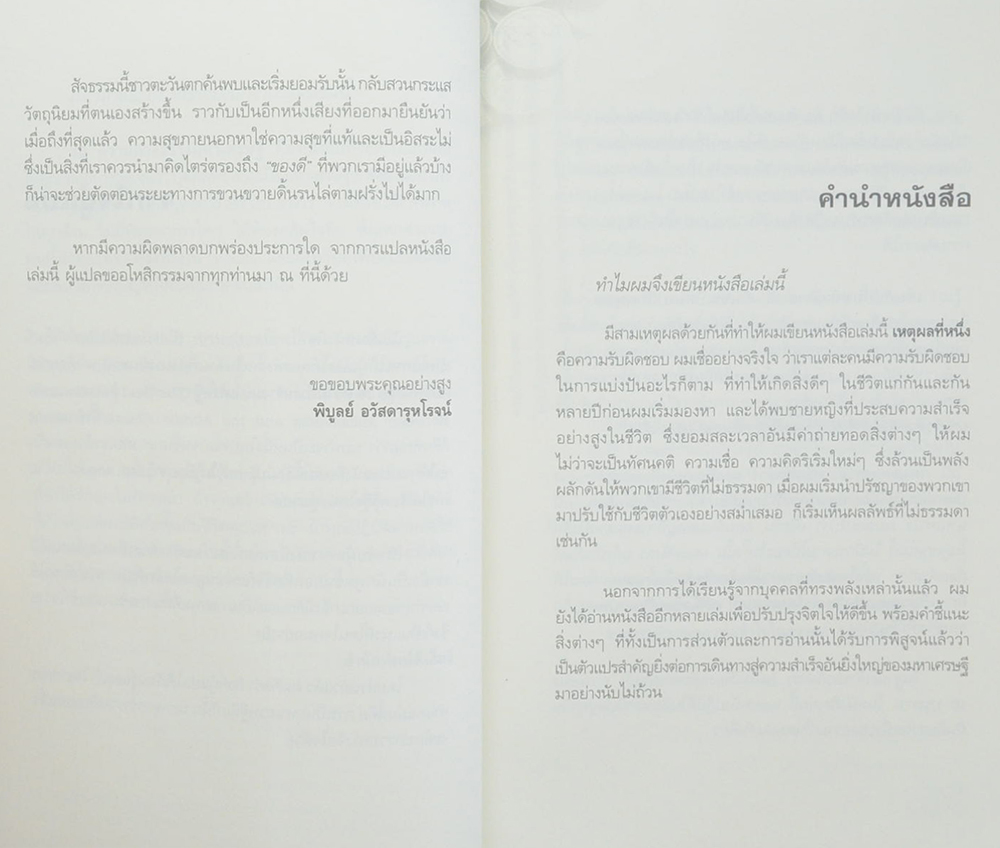 สัจธรรมนี้ชาวตะวันตกค้นพบและเริ่มยอมรับนั้น กลับสวนกระแส
วัตถุนิยมที่ตนเองสร้างขึ้น ราวกับเป็นอีกหนึ่งเสียงที่ออกมายืนยันว่า
เมื่อถึงที่สุดแล้ว ความสุขภายนอกหาใช่ความสุขที่แท้และเป็นอิสระไม่
ซึ่งเป็นสิ่งที่เราควรนำมาคิดไตร่ตรองถึง “ของดี” ที่พวกเรามีอยู่แล้วบ้าง
ก็น่าจะช่วยตัดตอนระยะทางการขวนขวายดิ้นรนไล่ตามฝรั่งไปได้มาก
หากมีความผิดพลาดบกพร่องประการใด จากการแปลหนังสือ
เล่มนี้ ผู้แปลขออโหสิกรรมจากทุกท่านมา ณ ที่นี้ด้วย
ขอขอบพระคุณอย่างสูง
พิบูลย์ อวัสดารุหโรจน์
คำนำหนังสือ
ทำไมผมจึงเขียนหนังสือเล่มนี้
มีสามเหตุผลด้วยกันที่ทำให้ผมเขียนหนังสือเล่มนี้ เหตุผลที่หนึ่ง
คือความรับผิดชอบ ผมเชื่ออย่างจริงใจ ว่าเราแต่ละคนมีความรับผิดชอบ
ในการแบ่งปันอะไรก็ตาม ที่ทำให้เกิดสิ่งดีๆ ในชีวิตแก่กันและกัน
หลายปีก่อนผมเริ่มมองหา และได้พบชายหญิงที่ประสบความสำเร็จ
อย่างสูงในชีวิต ซึ่งยอมสละเวลาอันมีค่าถ่ายทอดสิ่งต่างๆ ให้ผม
ไม่ว่าจะเป็นทัศนคติ ความเชื่อ ความคิดริเริ่มใหม่ๆ ซึ่งล้วนเป็นพลัง
ผลักดันให้พวกเขามีชีวิตที่ไม่ธรรมดา เมื่อผมเริ่มนำปรัชญาของพวกเขา
มาปรับใช้กับชีวิตตัวเองอย่างสม่ำเสมอ ก็เริ่มเห็นผลลัพธ์ที่ไม่ธรรมดา
เช่นกัน
นอกจากการได้เรียนรู้จากบุคคลที่ทรงพลังเหล่านั้นแล้ว ผม
ยังได้อ่านหนังสืออีกหลายเล่มเพื่อปรับปรุงจิตใจให้ดีขึ้น พร้อมคำชี้แนะ
สิ่งต่างๆ ที่ทั้งเป็นการส่วนตัวและการอ่านนั้นได้รับการพิสูจน์แล้วว่า
เป็นตัวแปรสำคัญยิ่งต่อการเดินทางสู่ความสำเร็จอันยิ่งใหญ่ของมหาเศรษฐี
มาอย่างนับไม่ถ้วน